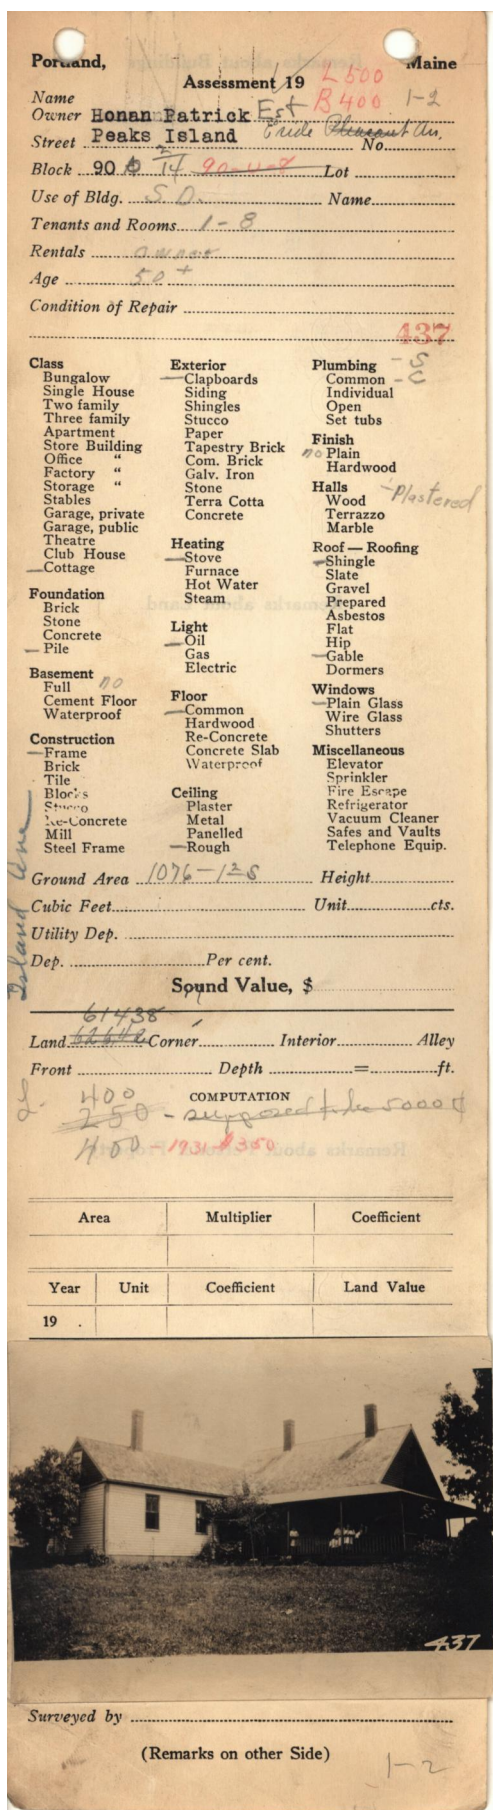 Portland, Maine
Assessment 19 L 500
Name B 400 1-2
Owner Honan Patrick Est
Street Peaks Island No. Av.
Block 90 14 90-U-8 Lot
Use of Bldg. S.D. Name
Tenants and Rooms 1-8
Rentals owner
Age 50+
Condition of Repair
437
Class
Bungalow
Single House
Two family
Three family
Apartment
Store Building
Office "
Factory "
Storage "
Stables
Garage, private
Garage, public
Theatre
Club House
Cottage
Foundation
Brick
Stone
Concrete
Pile
Basement
Full no
Cement Floor
Waterproof
Construction
Frame
Brick
Tile
Blocks
Stucco
Re-Concrete
Mill
Steel Frame
Exterior
Clapboards
Siding
Shingles
Stucco
Paper
Tapestry Brick
Com. Brick
Galv. Iron
Stone
Terra Cotta
Concrete
Heating
Stove
Furnace
Hot Water
Steam
Light
Oil
Gas
Electric
Floor
Common
Hardwood
Re-Concrete
Concrete Slab
Waterproof
Ceiling
Plaster
Metal
Panelled
Rough
Plumbing - S
Common - C
Individual
Open
Set tubs
Finish
no Plain
Hardwood
Halls - Plastered
Wood
Terrazzo
Marble
Roof — Roofing
Shingle
Slate
Gravel
Prepared
Asbestos
Flat
Hip
Gable
Dormers
Windows
Plain Glass
Wire Glass
Shutters
Miscellaneous
Elevator
Sprinkler
Fire Escape
Refrigerator
Vacuum Cleaner
Safes and Vaults
Telephone Equip.
Island Ave
Ground Area 1076-1 2 S Height
Cubic Feet Unit cts.
Utility Dep.
Dep. Per cent.
Sound Value, $
61438
Land Corner Interior Alley
Front Depth = ft.
COMPUTATION
L. 400
250 - supposed to be 5000
400 - 1931 $350
Area Multiplier Coefficient
Year Unit Coefficient Land Value
19 .
437
Surveyed by
(Remarks on other Side)
1-2